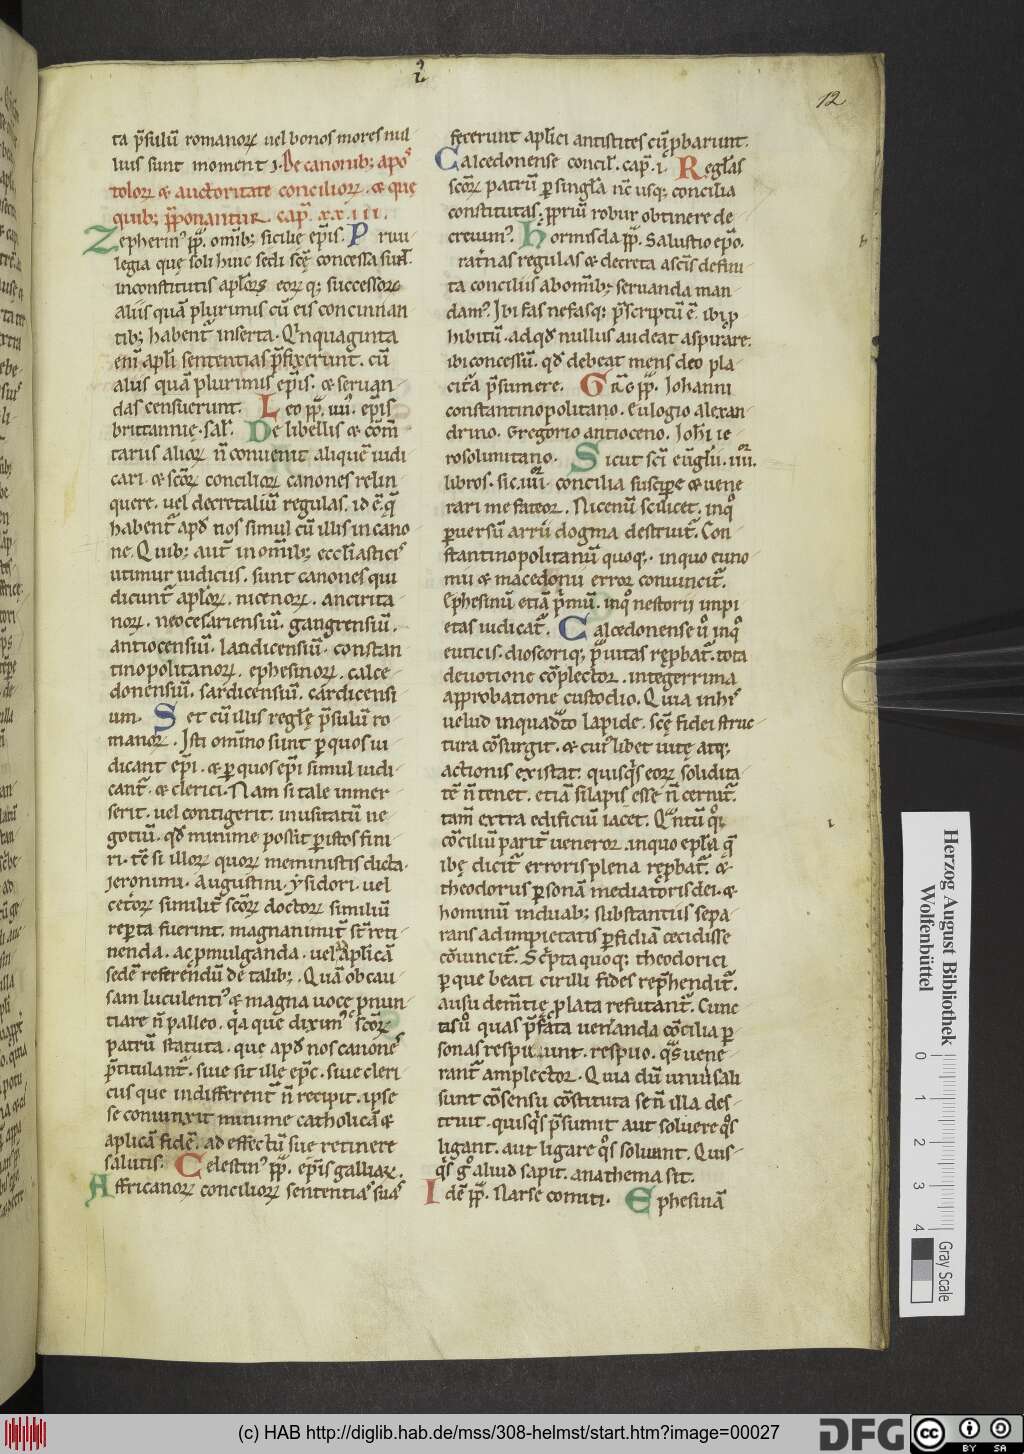 12
ta p̄sulū romanoꝝ uel bonos mores nul
lius sunt momenti. De canonib; apo
tolorꝝ & auctoritate concilioꝝ. & que
quib; p̄ponantur. cap̄. xx.iii.
Zepherin᷒ p̄p̄. om̄ib; sicilię ep̄is. Priui
legia quę soli huic sedi sc̄ę concessa sūt.
inconstitutis apl̄oꝝ eoꝝq; successoꝝ
aliis quā plurimis cū eis concinnan
tib; habent᷑ inserta. Quinquaginta
enī apl̄i sententias p̄fixerunt. cū
aliis quā plurimis ep̄is. & seruan
das censuerunt. Leo p̄p̄. iiii. ep̄is
brittannię. sal̄. De libellis & com̄
tariis alioꝝ n̄ conuenit aliquē iudi
cari. & sc̄oꝝ concilioꝝ canones relin
quere. uel decretaliū regulas. id ē. q̄
habent᷑ apd̄ nos simul cū illis in cano
ne. Quib; aut̄ in om̄ib; eccl̄iasticis
utimur iudiciis. sunt canones qui
dicunt᷑ apl̄oꝝ. nicenoꝝ. ancirita
noꝝ. neocesariensiū. gangrensiū.
antiocensiū. laudicensiū. constan
tinopolitanoꝝ. ephesinoꝝ. calce
donensiū. sardicensiū. cardicensi
um. Set cū illis regl̄ę p̄sulū ro
manoꝝ. Isti om̄ino sunt ꝑ quos iu
dicant ep̄i. & ꝑ quos ep̄i simul iudi
cant᷑. & clerici. Nam si tale inmer
serit. uel contigerit. inusitatū ne
gotiū. qd̄ minime possit ꝑ istos fini
ri. tc̄ si illoꝝ quoꝝ meministis dicta.
Jeronimi. augustini. ysidori. uel
cet̄oꝝ similit̄ sc̄oꝝ doctoꝝ similiū
reꝑta fuerint. magnanimit̄ st̄ reti
nenda. ac ꝓmulganda. uel aplicā
sedē referendū de talib;. Quā ob cau
sam luculent᷒ & magna uoce ꝓnun
tiare n̄ palleo. q̄a que dixim᷒ sc̄oꝝ
patrū statuta. que apd̄ nos canones
p̄titulant᷑. siue sit ille ep̄c. siue cleri
cus que indifferent̄ n̄ recipit. ipse
se conuinxit minime catholicā &
aplicā fidē. ad effectū sue retinere
salutis. Celestin᷒ p̄p̄. ep̄is galliaꝝ.
Affricanoꝝ concilioꝝ sententias suas
fecerunt apl̄ici antistites cū ꝓbarunt.
Calcedonense concil̄. cap̄. i. Regl̄as
sc̄oꝝ patrū ꝑ singl̄a nc̄ usq; concilia
constitutas. ꝓpriū robur obtinere de
creuim᷒. Hormisda p̄p̄. Salustio ep̄o.
Pat̄nas regulas & decreta asc̄is defini
ta conciliis ab om̄ib; seruanda man
dam᷒. Ibi fas nefasq; p̄scriptū ē. ibi ꝓ
hibitū. ad qd̄ nullus audeat aspirare.
ibi concessū. qd̄ debeat mens deo pla
cit̄a p̄sumere. Gr̄e p̄p̄. Johanni
constantinopolitano. Eulogio alexan
drino. Gregorio antioceno. Joh̄i ie
rosolimitano. Sicut sc̄i eūgl̄ii. iiii.
libros. sic. iiii. concilia suscipe & uene
rari me fateor. Nicenū scilicet. in q̊
ꝑuersū arrii dogma destruit᷑. Con
stantinopolitanū quoq;. in quo euno
mii & macedonii error conuincit᷑.
Ephesinū etiā p̄mū. in q̊ nestorii impi
etas iudicat᷑. Calcedonense ů in q̊
euticis. dioscoriq; ꝓuitas reꝓbat᷑. tota
deuotione cōplector. integerrima
approbatione custodio. Quia in his
uelud in quadto lapide. sc̄ę fidei struc
tura cōsurgit. & cui᷒libet uitę atq;
actionis existat. quisqs eoꝝ solidita
tē n̄ tenet. etiā si lapis esse n̄ cernit᷑.
tam̄ extra edificiū iacet. Quintū qq;
cōciliū parit̄ ueneror. in quo epl̄a q̄
ibę dicit᷑ erroris plena reꝓbat᷑. &
theodorus ꝑsonā mediatoris dei. &
hominū in duab; substantiis sepa
rans ad impietatis ꝑfidiā cecidisse
cōuincit᷑. Sc̄pta quoq; theodorici
ꝑ que beati cirilli fides rep̄hendit᷑.
ausu dem̄tię ꝓlata refutant᷑. Cunc
tas ů quas p̄fata uen̄anda cōcilia ꝑ
sonas respuunt. respuo. qs uene
rant᷑ amplector. Quia dū uniūsali
sunt cōsensu cōstituta se n̄ illa des
truit. quisqs p̄sumit aut soluere qs
ligant. aut ligare qs soluunt. Quis
qs g̊ aliud sapit. anathema sit.
Idē p̄p̄. Narse comiti. Ephesinā
Herzog August Bibliothek
Wolfenbüttel
0 1 2 3 4
Gray Scale
(c) HAB http://diglib.hab.de/mss/308-helmst/start.htm?image=00027
DFG
cc BY SA